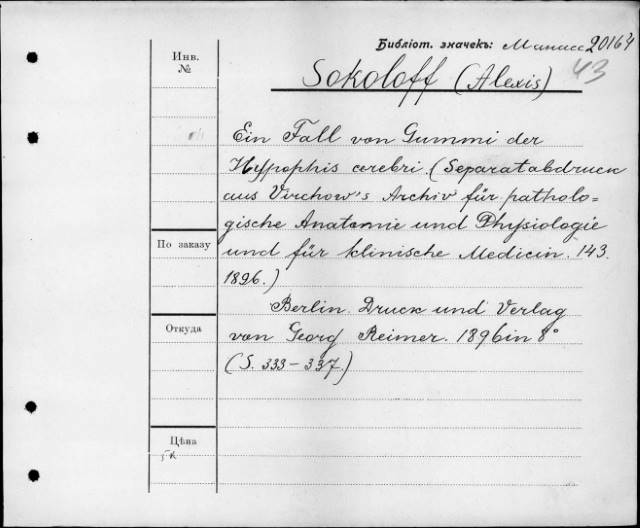 Библіот. значекъ: Манасс 20164
Инв.
№
Sokoloff (Alexis) 43
Ein Fall von Gummi der
Hypophis cerebri (Separatabdruck
aus Virchow's Archiv für patholo=
gische Anatomie und Physiologie
und für klinische Medicin. 143.
1896.)
По заказу
Berlin. Druck und Verlag
von Georg Reimer. 1896 in 8°
(S. 333-337.)
Откуда
Цѣна